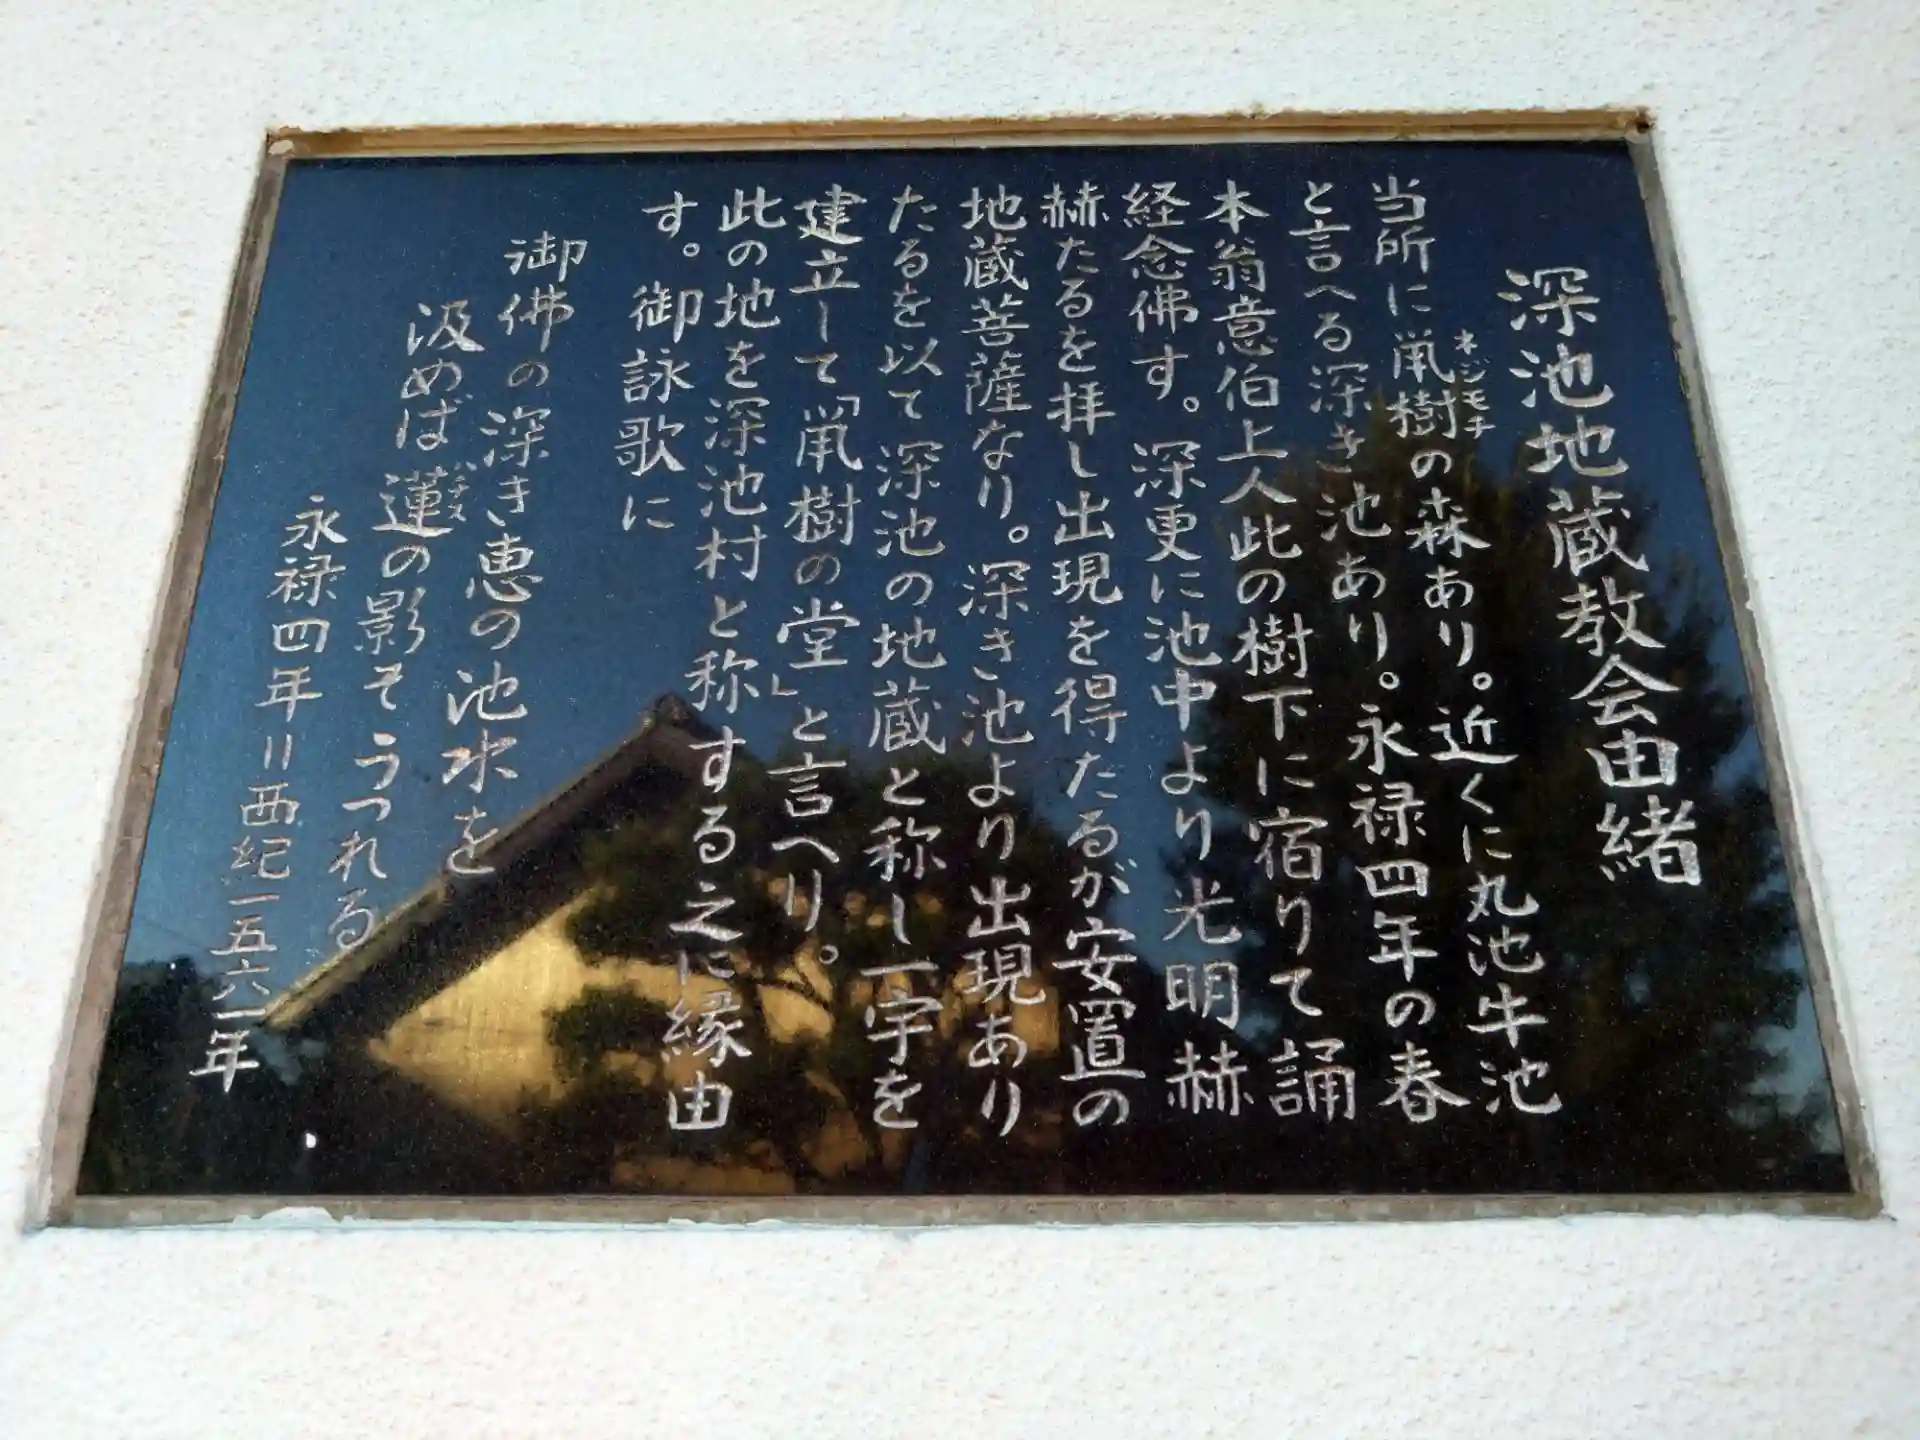 深池地蔵教会由緒
当所に鼡樹の森あり。近くに丸池牛池
ネジモチ
と言へる深き池あり。永禄四年の春
本翁意伯上人此の樹下に宿りて誦
経念佛す。深更に池中より光明赫
赫たるを拝し出現を得たるが安置の
地蔵菩薩なり。深き池より出現あり
たるを以て深池の地蔵と称し一宇を
建立して「鼡樹の堂」と言へり。
此の地を深池村と称する之に縁由
す。御詠歌に
御佛の深き恵の池水を
汲めば蓮の影そうつれる
ハチス
永禄四年=西紀一五六一年